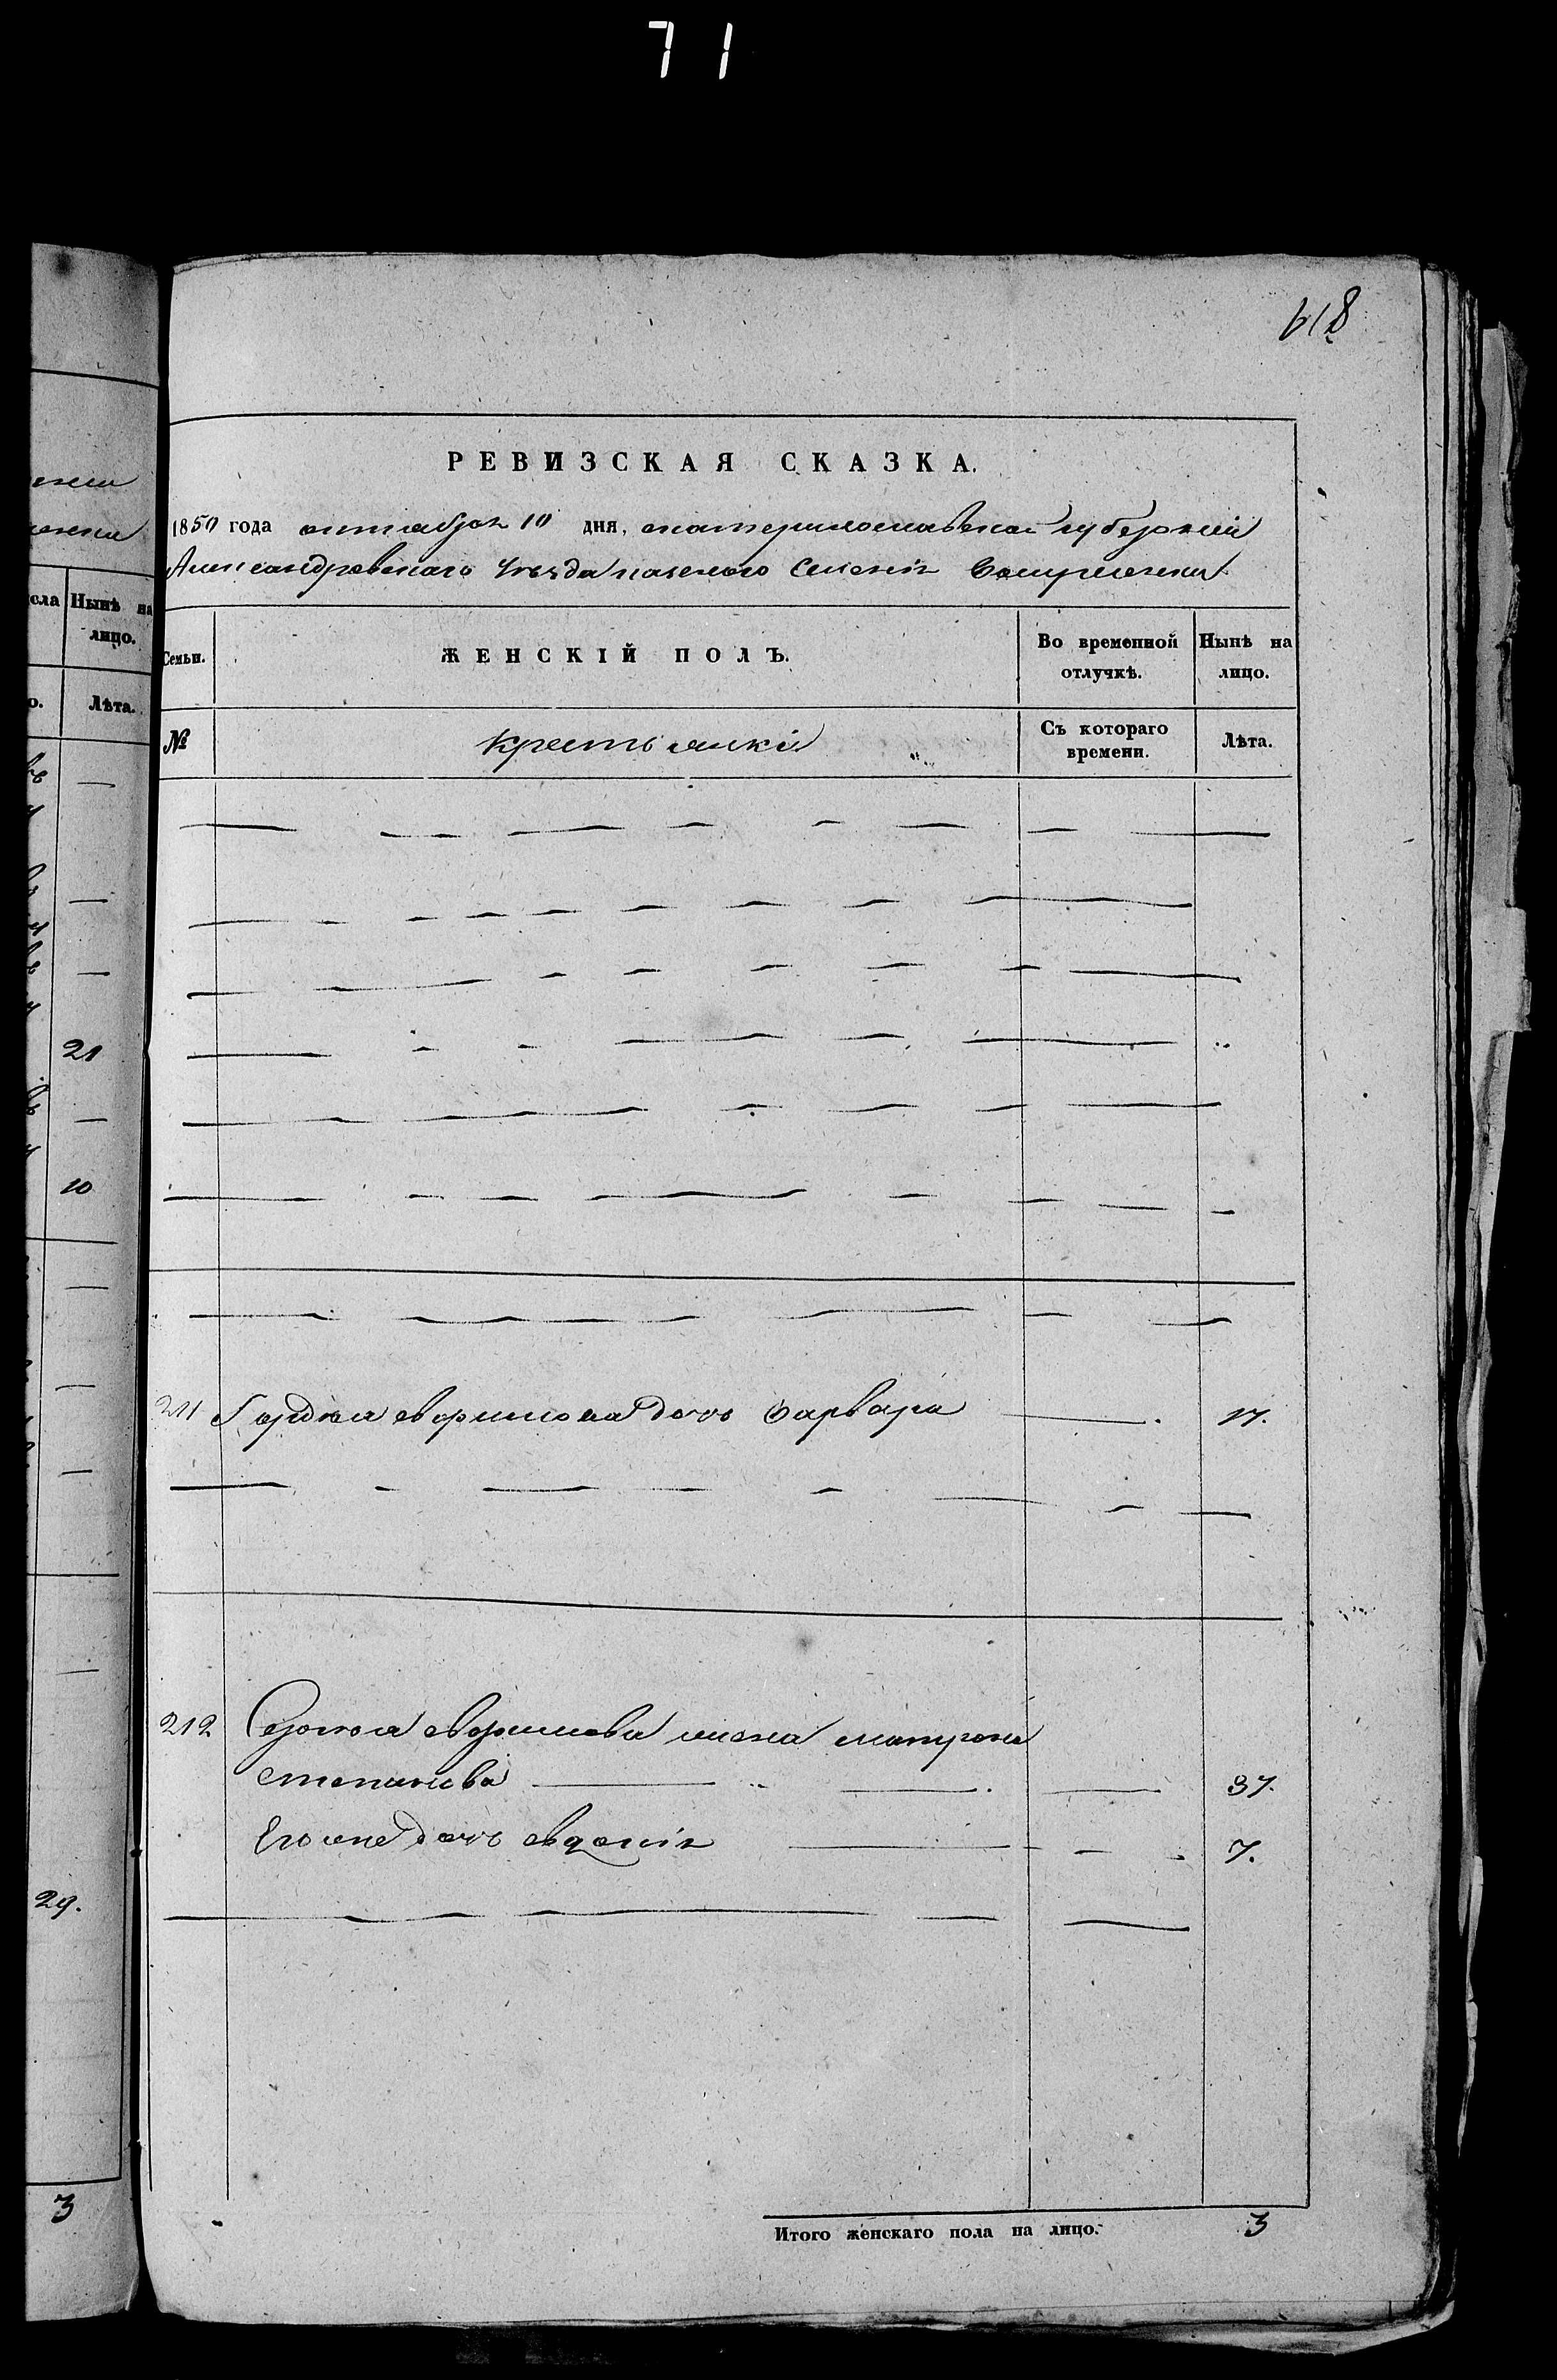 71
618
РЕВИЗСКАЯ СКАЗКА.
1850 года октября 10 дня, екатеринославской губерніи
Александровскаго уезда казеного Селенія
Семьи.
ЖЕНСКІЙ ПОЛЪ.
Во временной отлучкѣ.
Нынѣ на лицо.
№
крестьянки
Съ котораго времени.
Лѣта.
211 Гордѣя дочь варвара 17.
212 жена матрона
степанова 37.
Его же дочь евдокія 7.
Итого женскаго пола на лицо. 3
сла
Нынѣ на лицо.
о.
Лѣта.
21
10
29.
3